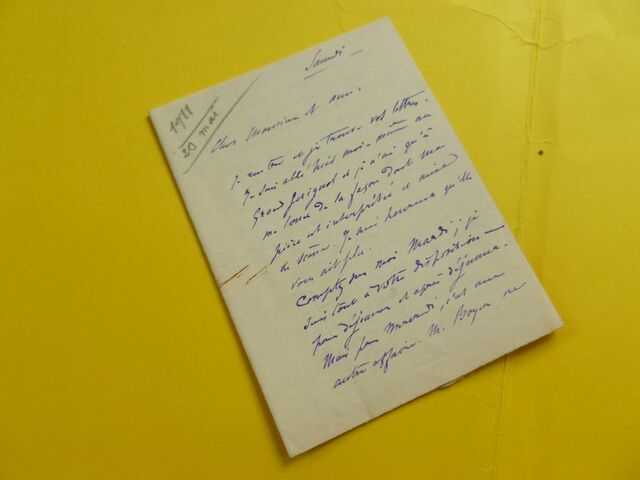 Samedi
1911
20 mai
Cher Monsieur et ami
Je rentre et je trouve vos lettres.
Je suis allé hier moi-même au
Grand Guignol et je n'ai qu'à
me louer de la façon dont ma
pièce est interprétée et mise
en scène. Je suis heureux qu'elle
vous ait plu.
Comptez sur moi Mardi ; je
suis tout à votre disposition
pour déjeuner et après déjeuner.
Mais pour Mercredi, c'est une
autre affaire. M. Boyer ne